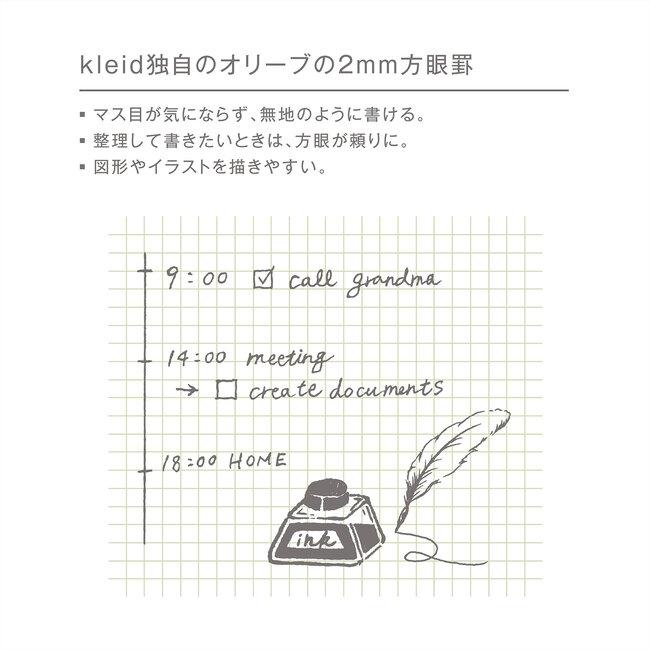 kleid独自のオリーブの2mm方眼罫
▪ マス目が気にならず、無地のように書ける。
▪ 整理して書きたいときは、方眼が頼りに。
▪ 図形やイラストを描きやすい。
9:00 ☑ call grandma
14:00 meeting
→ ☐ create documents
18:00 HOME
ink